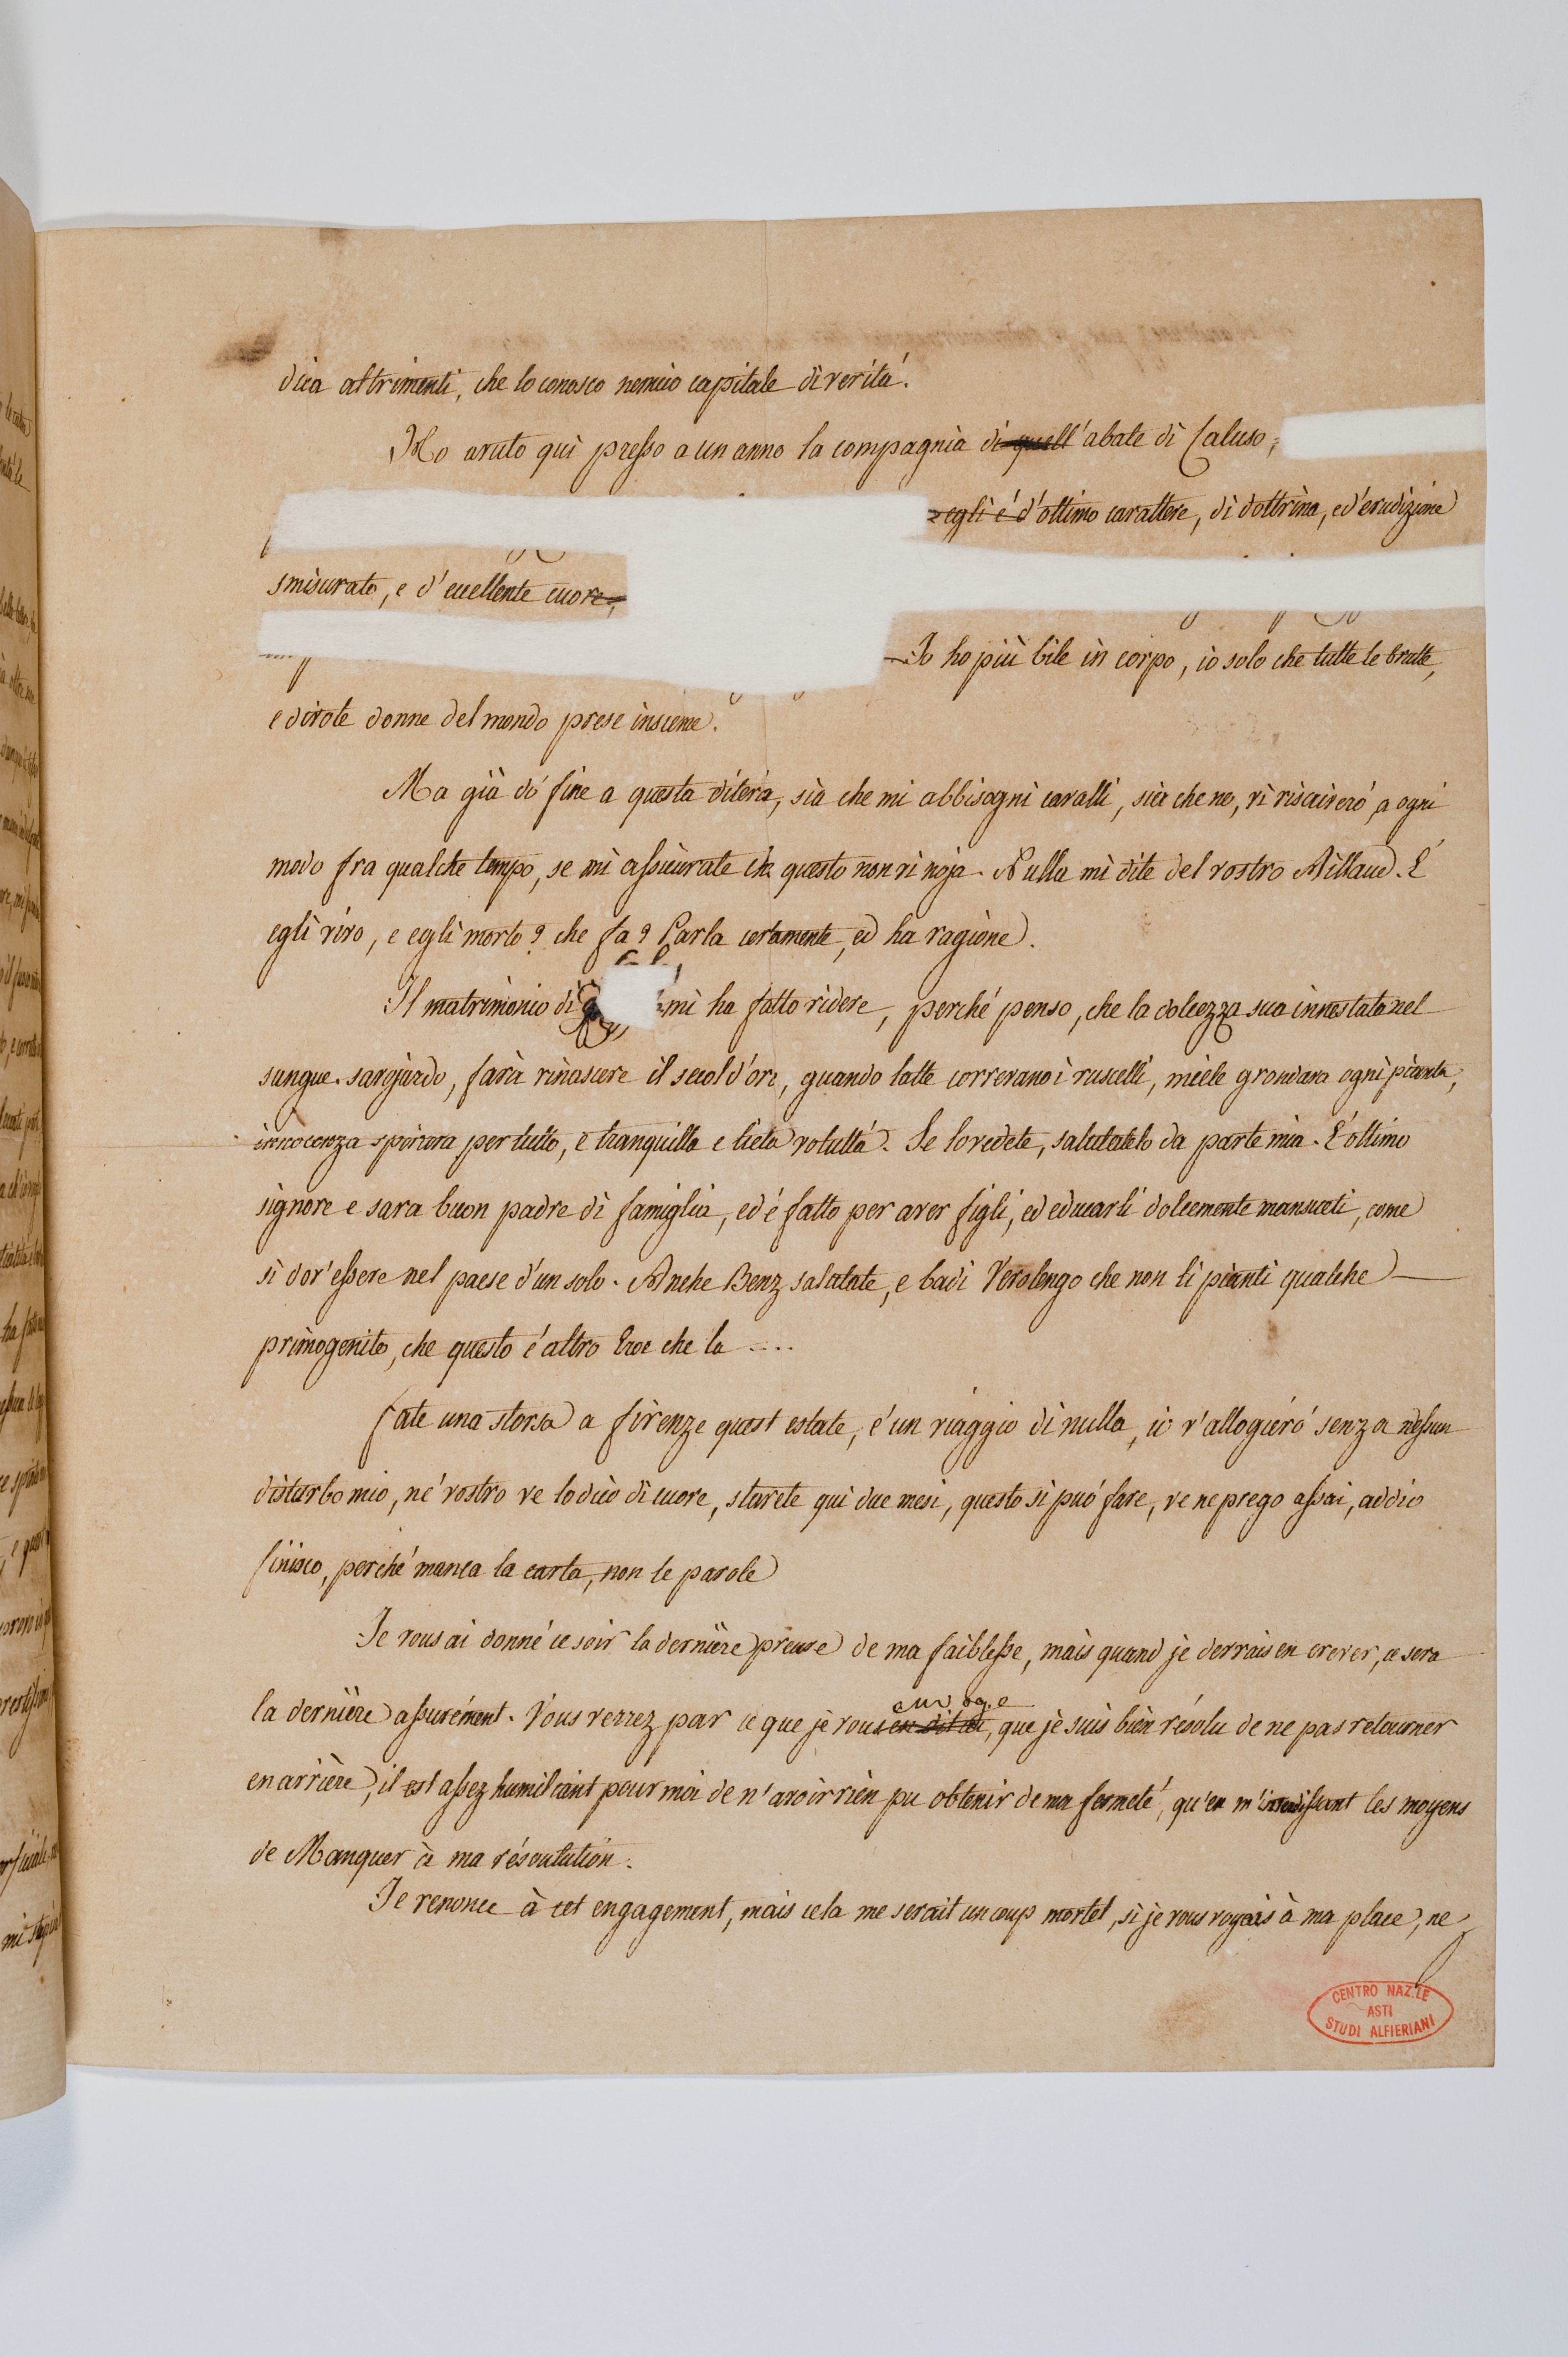 dica altrimenti, che lo conosco nemico capitale di verità.
Ho avuto qui presso a un anno la compagnia di quell'abate di Caluso,
egli é d'ottimo carattere, di dottrina, ed'erudizione
smisurata, e d'eccellente cuore,
Io ho più bile in corpo, io solo che tutte le brutte,
e divote donne del mondo prese insieme.
Ma già dó fine a questa diteria, sia che mi abbisogni cavalli, sia che no, vi riscriveró a ogni
modo fra qualche tempo, se mi assicurate che questo non vi noja. Nulla mi dite del vostro Aillaud. É
egli vivo, e egli morto? che fa? Parla certamente, ed ha ragione.
Il matrimonio di mi ha fatto ridere, perché penso, che la dolcezza sua innestata nel
sangue savojardo, farà rinascere il secol d'oro, quando latte correvano i ruscelli, miele grondava ogni pianta,
innocenza spirava per tutto, e tranquilla e lieta voluttá. Se lo vedete, salutatelo da parte mia. É ottimo
signore e sara buon padre di famiglia, ed é fatto per aver figli, ed educarli dolcemente mansueti, come
si dov'essere nel paese d'un solo. Anche Benz salutate, e badi Verolengo che non li pianti qualche
primogenito, che questo é altro Eroe che la ....
fate una storsa a firenze quest estate, é un viaggio di nulla, io v'allogieró senza nessun
disturbo mio, né vostro ve lo dico di cuore, starete qui due mesi, questo si puó fare, ve ne prego assai, addio
finisco, perché manca la carta, non le parole
Je vous ai donné ce soir la dernière preuve de ma faiblesse, mais quand je devrais en crever, ce sera
la dernière assurément. Vous verrez par ce que je vous en dit ici, que je suis bien résolu de ne pas retourner
envoye
en arrière, il est assez humiliant pour moi de n'avoir rien pu obtenir de ma fermeté, qu'en m' les moyens
de Manquer à ma résoulution.
Je renonce à cet engagement, mais cela me serait un coup mortel, si je vous voyais à ma place, ne
CENTRO NAZ.LE
ASTI
STUDI ALFIERIANI